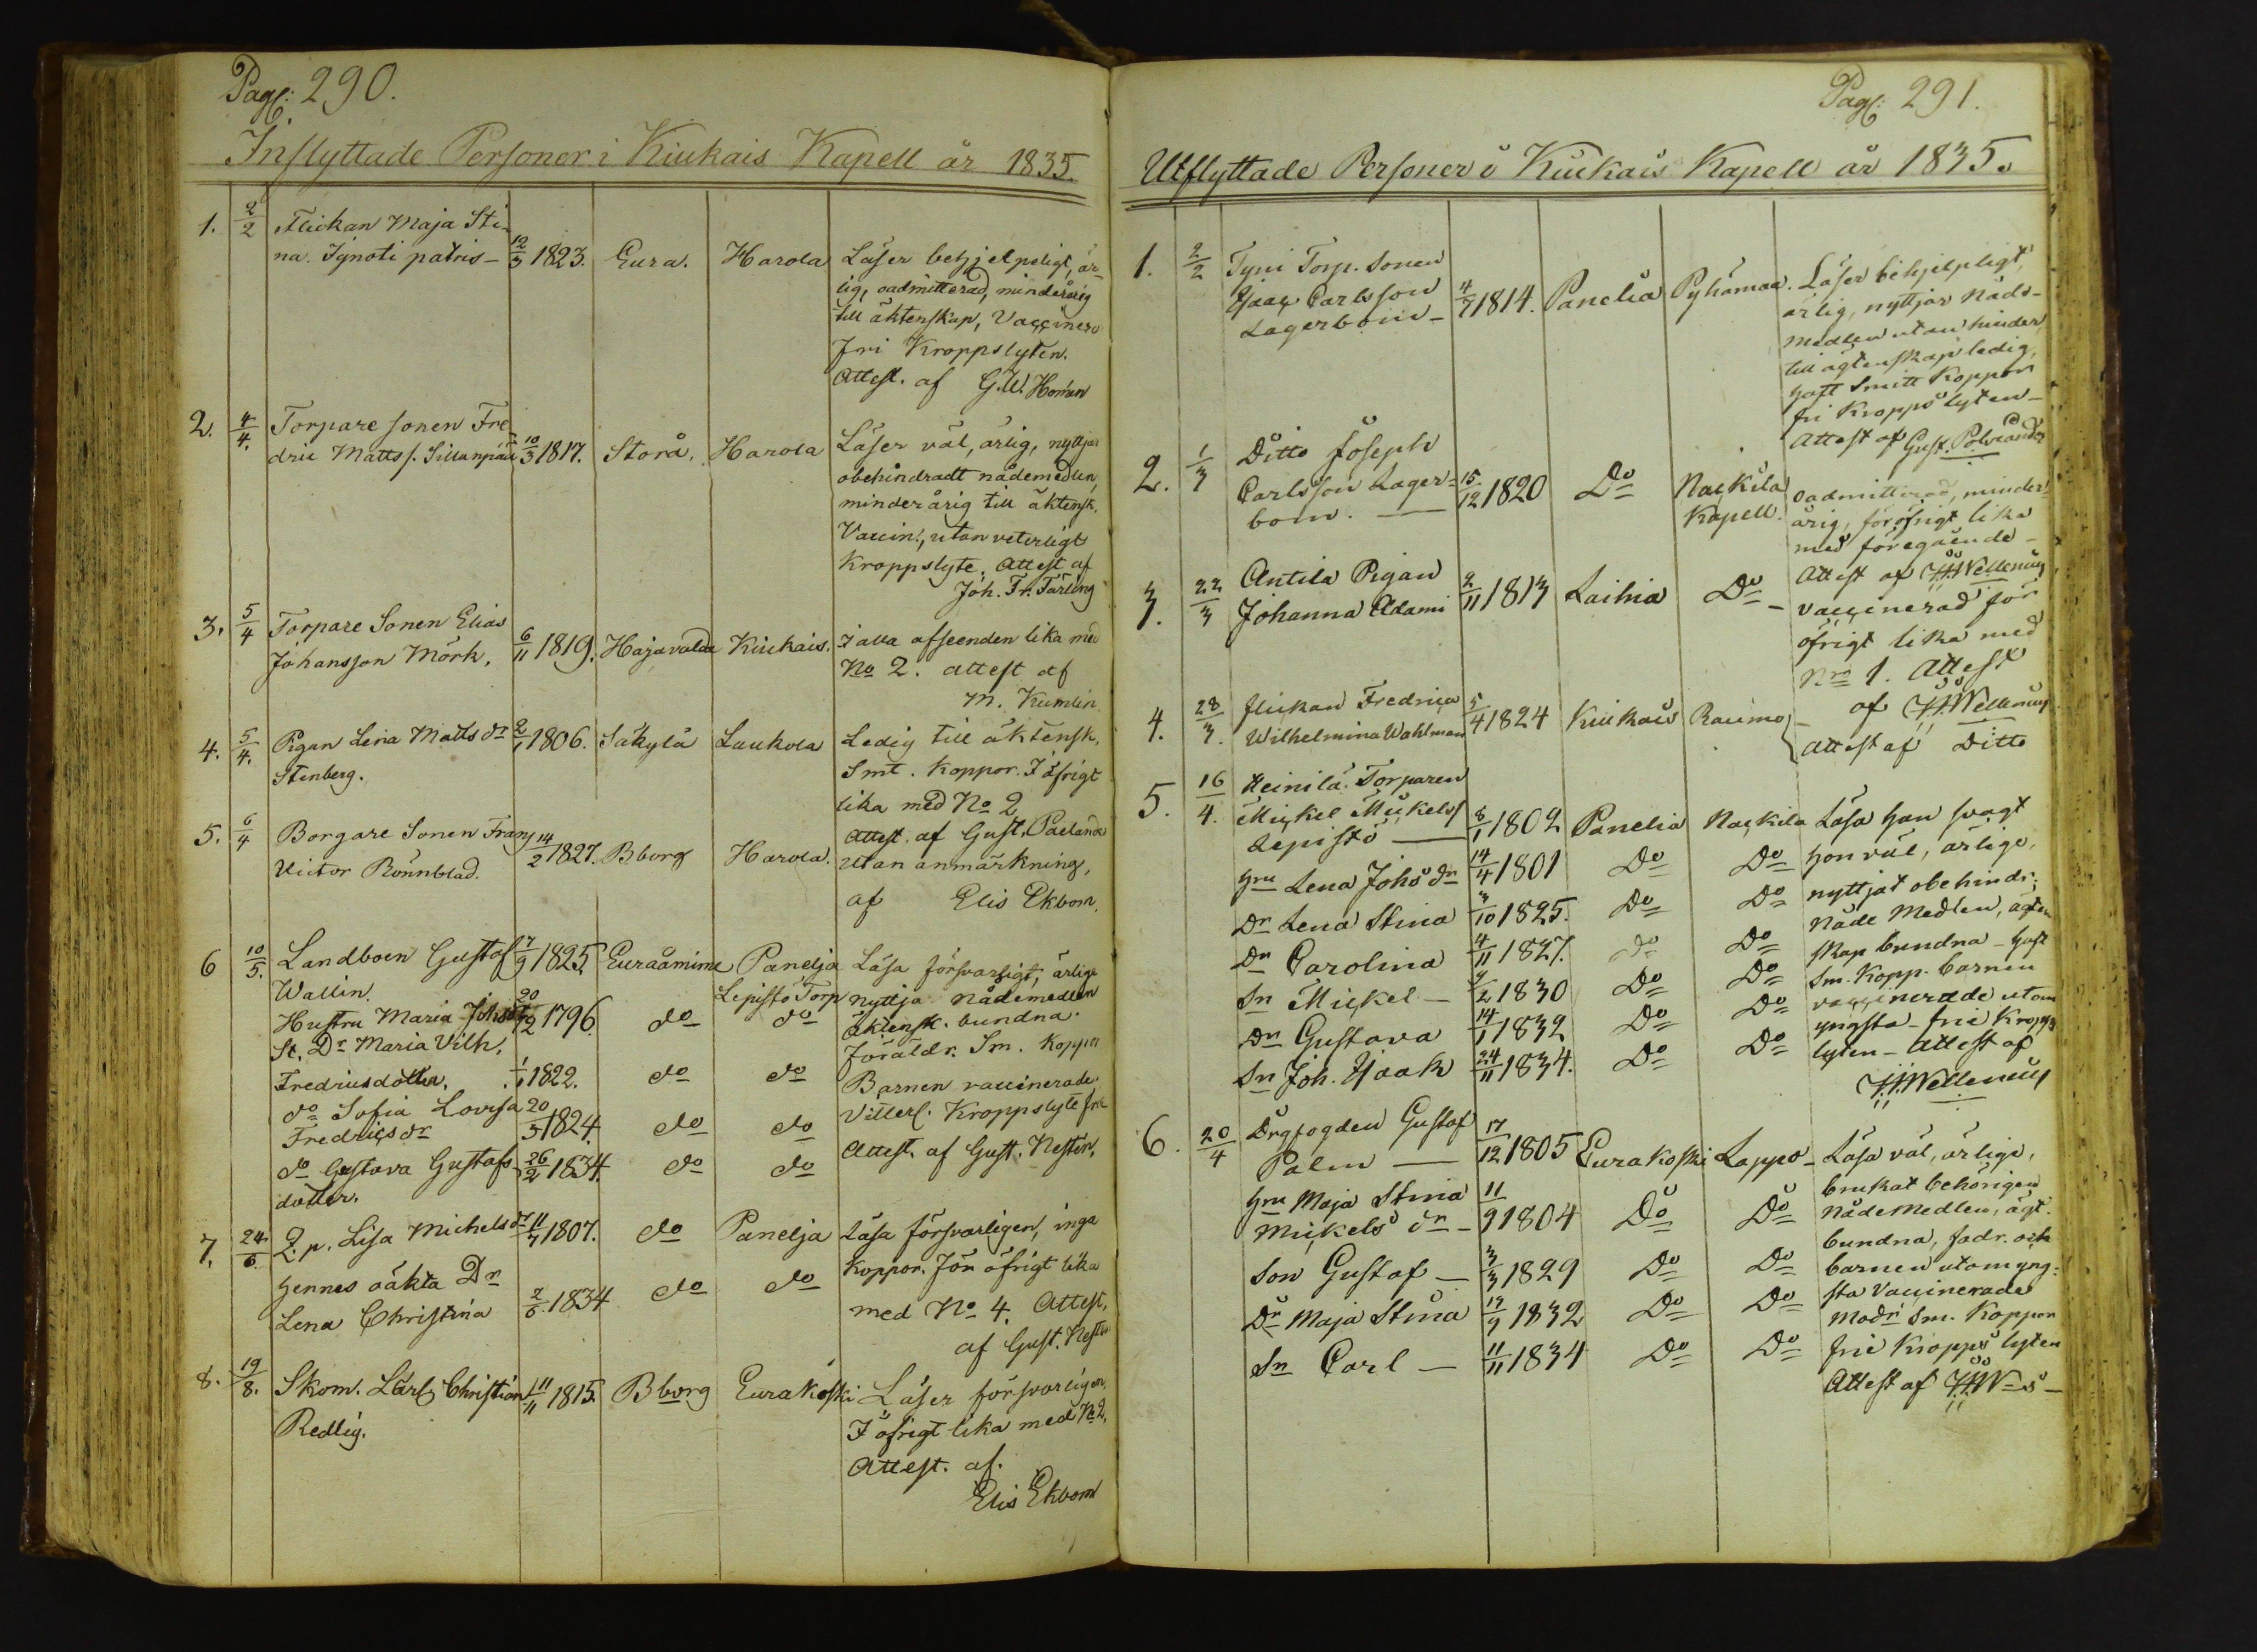 Pag: 290.
Inflyttade Personer i Kiukais Kapell år 1835.
1. 2/2 Flickan Maja Sti-
na. Ignoti patris - 12/3 1823. Eura. Harola Läser behjelpeligt, är-
lig, oadmitterad, minderårig
till äktenskap, Vaccinerd
fri Kroppslyten.
Attest. af G.W. Homén
2. 4/4. Torpare sonen Fre-
dric Matts s. Sillanpää 10/3 1817. Storå. Harola Läser väl, ärlig, nyttjar
obehindradt nådemedlen,
minderårig till äktensk.
Vaccin., utan veterligt
Kroppslyte. Attest af
Joh. Fr. Färling
3. 5/4 Torpare Sonen Elias
Johansson Mörk. 6/11 1819. Hajavalda Kiukais. I alla afseenden lika med
No 2. attest af
M. Kumlin
4. 5/4. Pigan Lena Matts dr 2/1 1806. Säkylä Laukola Ledig till äktensk.
Stenberg. Smt. Koppor. I öfrigt
lika med No 2
Attest. af Gust. Paelande
5. 6/4 Borgare Sonen Franz
Victor Rönnblad. 14/2 1827. Bborg Harola. Utan anmärkning,
af Elis Ekbom.
6 10/5. Landboen Gustaf 7/9 1825. Euraåminne Panelja Läsa försvarligt, ärliga
Wallin. Lepistö Torp nyttja nådemedlen
Hustru Maria Johsdr 20/12 1796. do do äktensk. bundna.
St. Dr Maria Vilh. Föräldr. Sm. Koppor
Fredricsdotter. 1/1 1822. do do Barnen vaccinerade.
do Sofia Lovisa 20/5 1824. do do Vitterl. Kroppslyte fria
Fredricsdr
do Gustava Gustafs 26/2 1834. do do Attest. af Gust. Nestor.
dotter.
7. 24/6. Q.p. Lisa Michelsdr 11/7 1807. do Panelja Läsa försvarligen, inga
hennes oäkta Dr Koppor. För öfrigt lika
Lena Christina 2/6 1834 do do med No 4. Attest.
af Gust. Nestor
8. 19/8. Skom. Lärl. Christian 11/11 1815. Bborg Eurakoski Läser försvarligen.
Redlig. I öfrigt lika med No 2.
Attest. af.
Elis Ekbom
Pag: 291.
Utflyttade Personer i Kiukais Kapell år 1835.
1. 2/2 Tyni Torp. Sonen
Isaac Carlsson 4/7 1814. Panelia Pyhämaa. Läser behjelpligt,
Lagerbom - ärlig, nyttjar Nåds-
medlen utan hinder,
till ägtenskap ledig,
haft Smitt Koppor
fri Kropps lyten -
Attest af Gust. Polviander
2. 1/3 Ditto Joseph
Carlsson Lager- 15/12 1820 Do Nackila Oadmitterad, minder-
bom. Kapell. årig, föröfrigt lika
med föregående -
Attest af J.H. Wellenius
3. 22/3 Antila Pigan
Johanna Adami 2/11 1813 Laihia Do - vaccinerad för
öfrigt lika med
Nro 1. Attest
af J.H. Wellenius
4. 28/3. flickan Fredrica
Wilhelmina Wahlman 5/4 1824 Kiukais Raumo - Attest af Ditto
5. 16/4. Heinilä Torparen
Mickel Mickelss
Lepistö 8/1 1802 Panelia Nackila Läsa han svagt
hru Lena Johs dr 14/4 1801 Do Do hon väl, ärliga,
Dr Lena Stina 3/10 1825. Do Do nyttjat obehindr.
Dr Carolina 4/11 1827. do Do Nåde Medlen, ägten
Sn Mickel - 4/2 1830 Do Do skap bundna - haft
Dr Gustava 14/1 1832 Do Do Sm. Kopp. barnen
Sn Joh. Isaak 24/11 1834. Do Do vaccinerade utom
yngsta - frie Kropps
lyten - Attest af
J.H. Wellenius
6. 20/4 Drgfogden Gustaf
Palm 17/12 1805 Eurakoski Lappo - Läsa väl, ärlige,
hru Maja Stina brukat behörigen
Mickels dr - 11/9 1804 Do Do nåde Medlen, ägt.
Son Gustaf - 3/3 1829 Do Do bundna, fadr. och
Dr Maja Stina 19/9 1832 Do Do barnen utom yng-
Sn Carl - 11/11 1834 Do Do sta Vaccinerade
Modr Sm. Koppor
frie Kropps lyten
Attest af J.H.W-s -